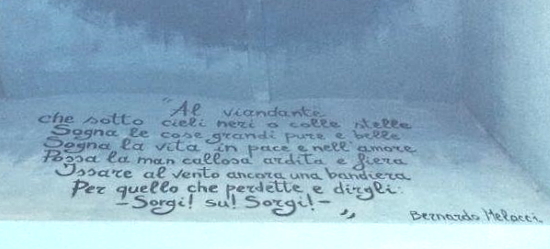 "Al viandante
che sotto cieli neri o colle stelle
Sogna le cose grandi pure e belle
Sogna la vita in pace e nell'amore
Possa la man callosa ardita e fiera
Issare al vento ancora una bandiera
Per quello che perdette e dirgli:
- Sorgi! su! Sorgi! - "
Bernardo Melacci